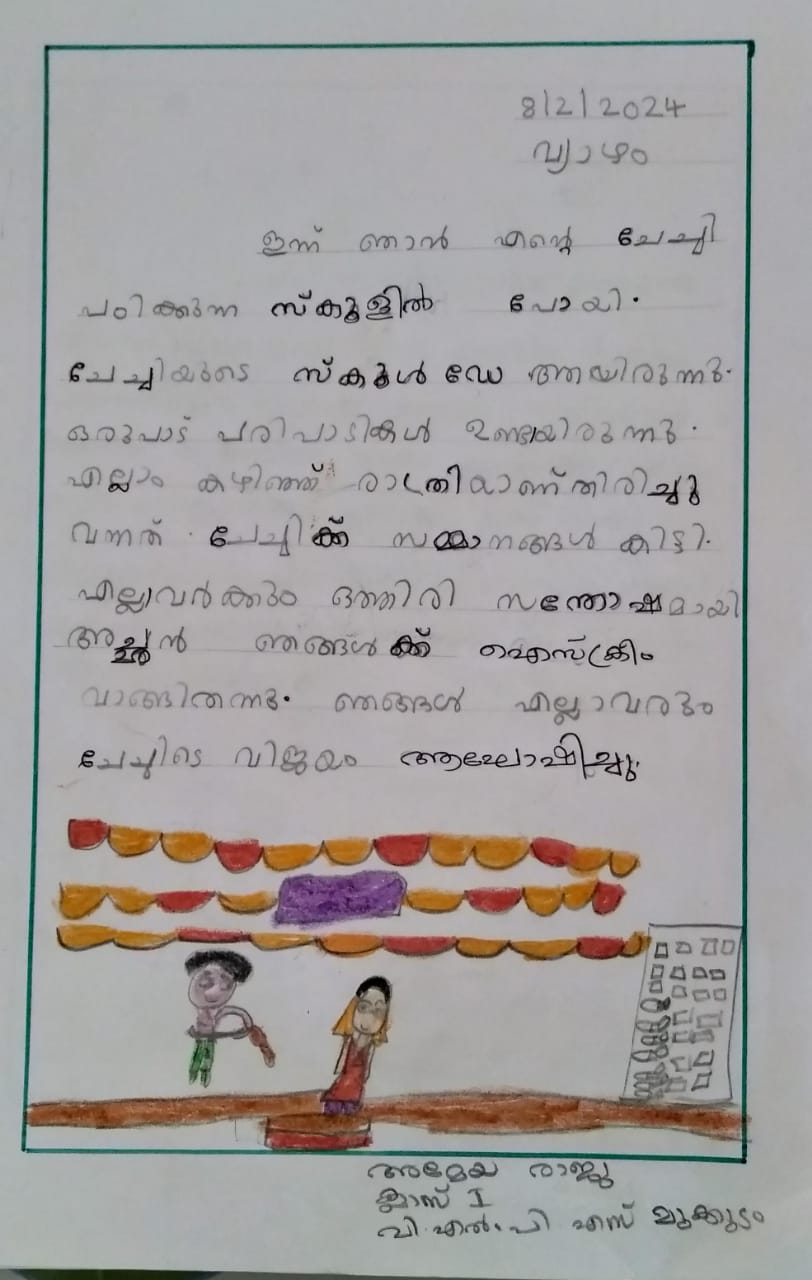 8/2/2024
വ്യാഴം
ഇന്ന് ഞാൻ എന്റെ ചേച്ചി
പഠിക്കുന്ന സ്കൂളിൽ പോയി.
ചേച്ചിയുടെ സ്കൂൾ ഡേ ആയിരുന്നു.
ഒരുപാട് പരിപാടികൾ ഉണ്ടായിരുന്നു.
എല്ലാം കഴിഞ്ഞ് രാത്രിയാണ് തിരിച്ചു
വന്നത്. ചേച്ചിക്ക് സമ്മാനങ്ങൾ കിട്ടി.
എല്ലാവർക്കും ഒത്തിരി സന്തോഷമായി
അച്ഛൻ ഞങ്ങൾക്ക് ഐസ്ക്രീം
വാങ്ങിതന്നു. ഞങ്ങൾ എല്ലാവരും
ചേച്ചിടെ വിജയം ആഘോഷിച്ചു.
അമേയ രാജു
ക്ലാസ് I
വി.എൽ.പി എസ് മുക്കുടം